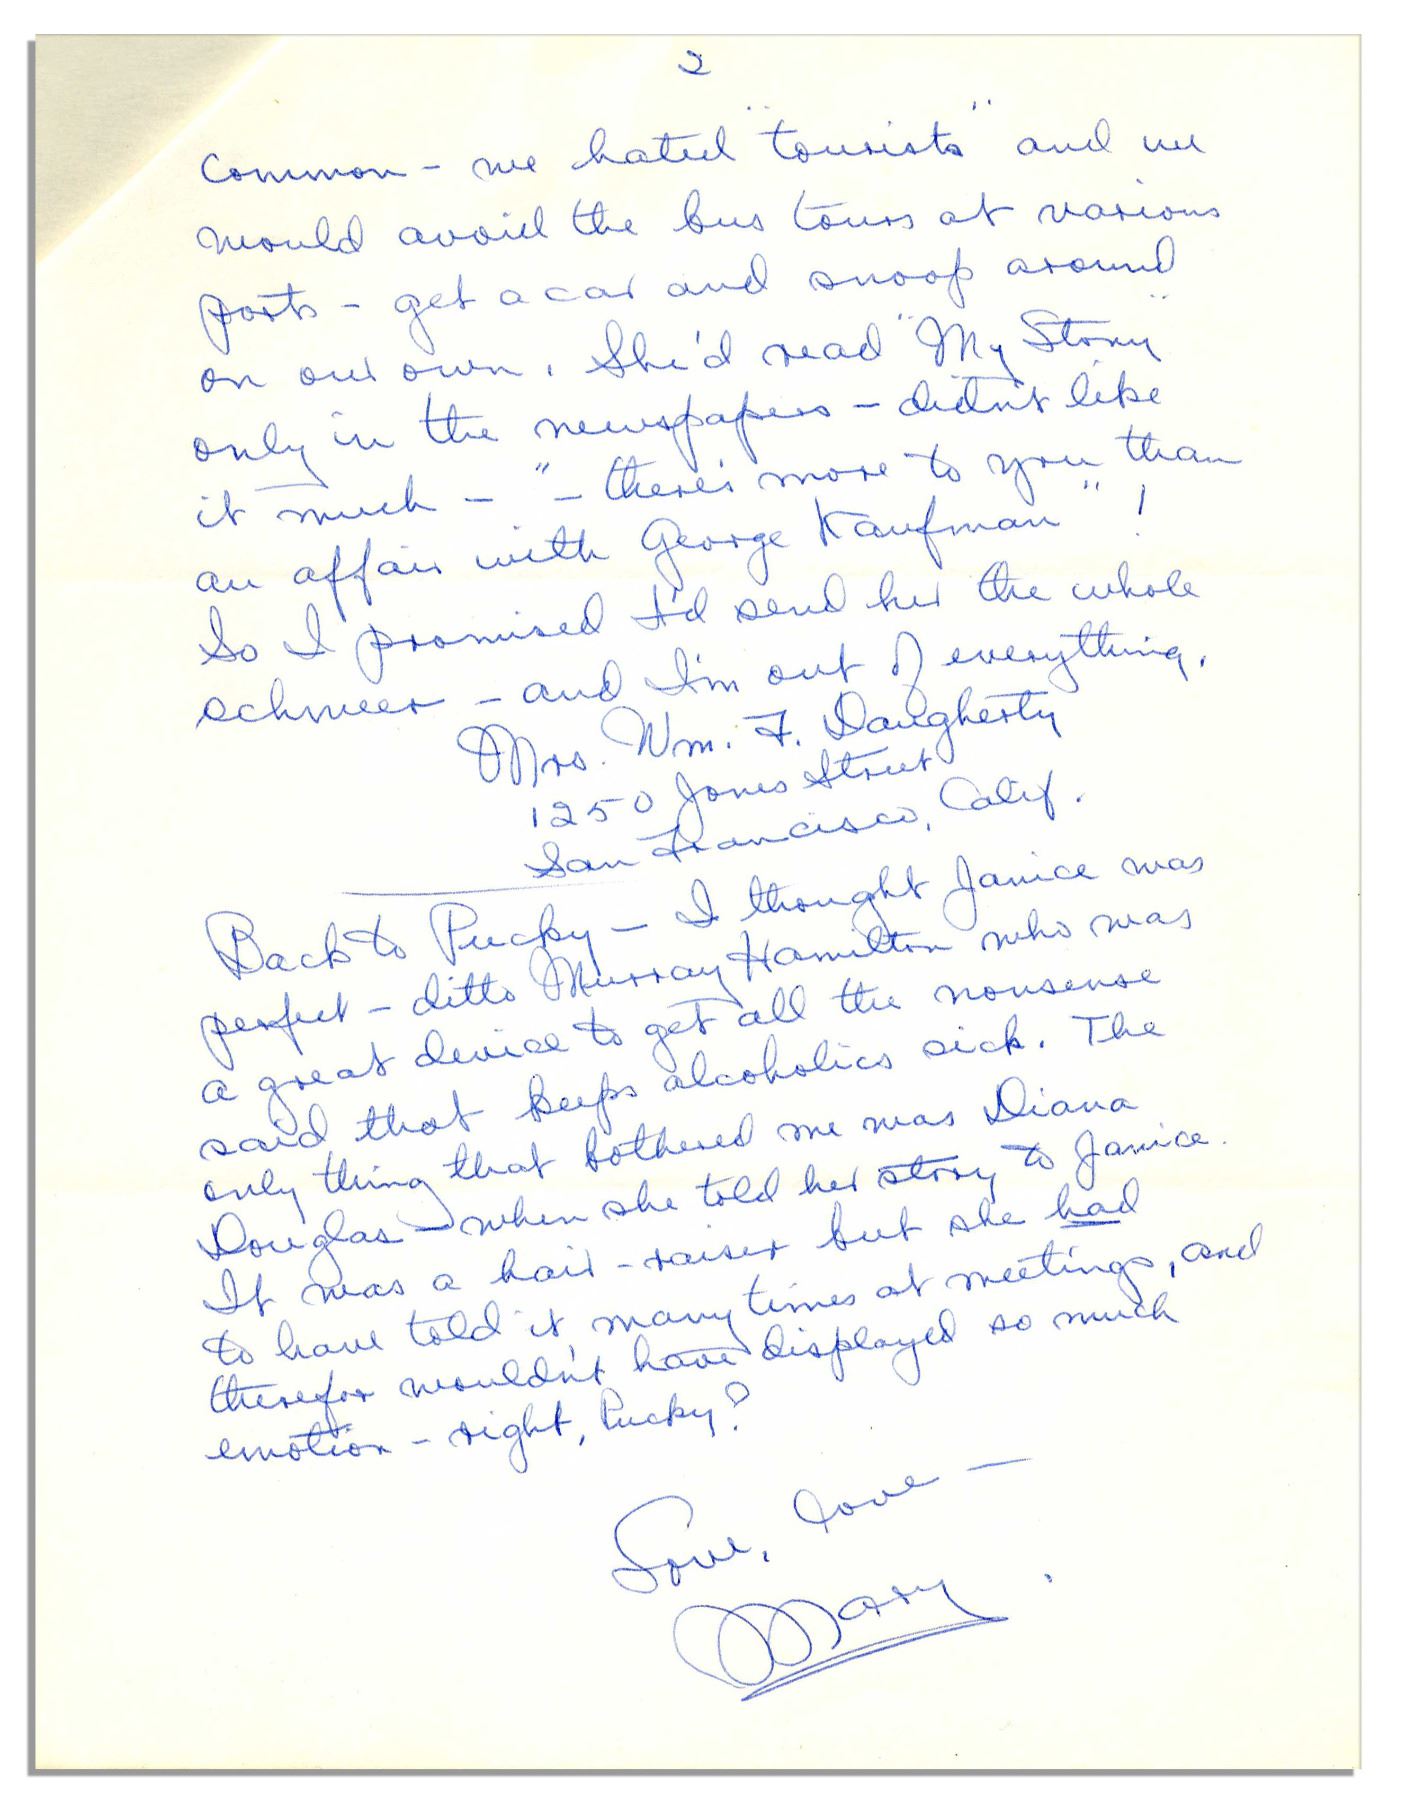 2
common - we hated "tourists" and we
would avoid the bus tours at various
ports - get a car and snoop around
on our own. She'd read "My Story"
only in the newspapers - didn't like
it much - "- there's more to you than
an affair with George Kaufman"!
So I promised I'd send her the whole
schmeer - and I'm out of everything.
Mrs. Wm. F. Daugherty
1250 Jones Street
San Francisco, Calif.
Back to Pucky - I thought Janice was
perfect - ditto Murray Hamilton who was
a great device to get all the nonsense
said that keeps alcoholics sick. The
only thing that bothered me was Diana
Douglas - when she told her story to Janice.
It was a hair-raiser but she had
to have told it many times at meetings, and
therefor wouldn't have displayed so much
emotion - right, Pucky?
Love, love -
Mary